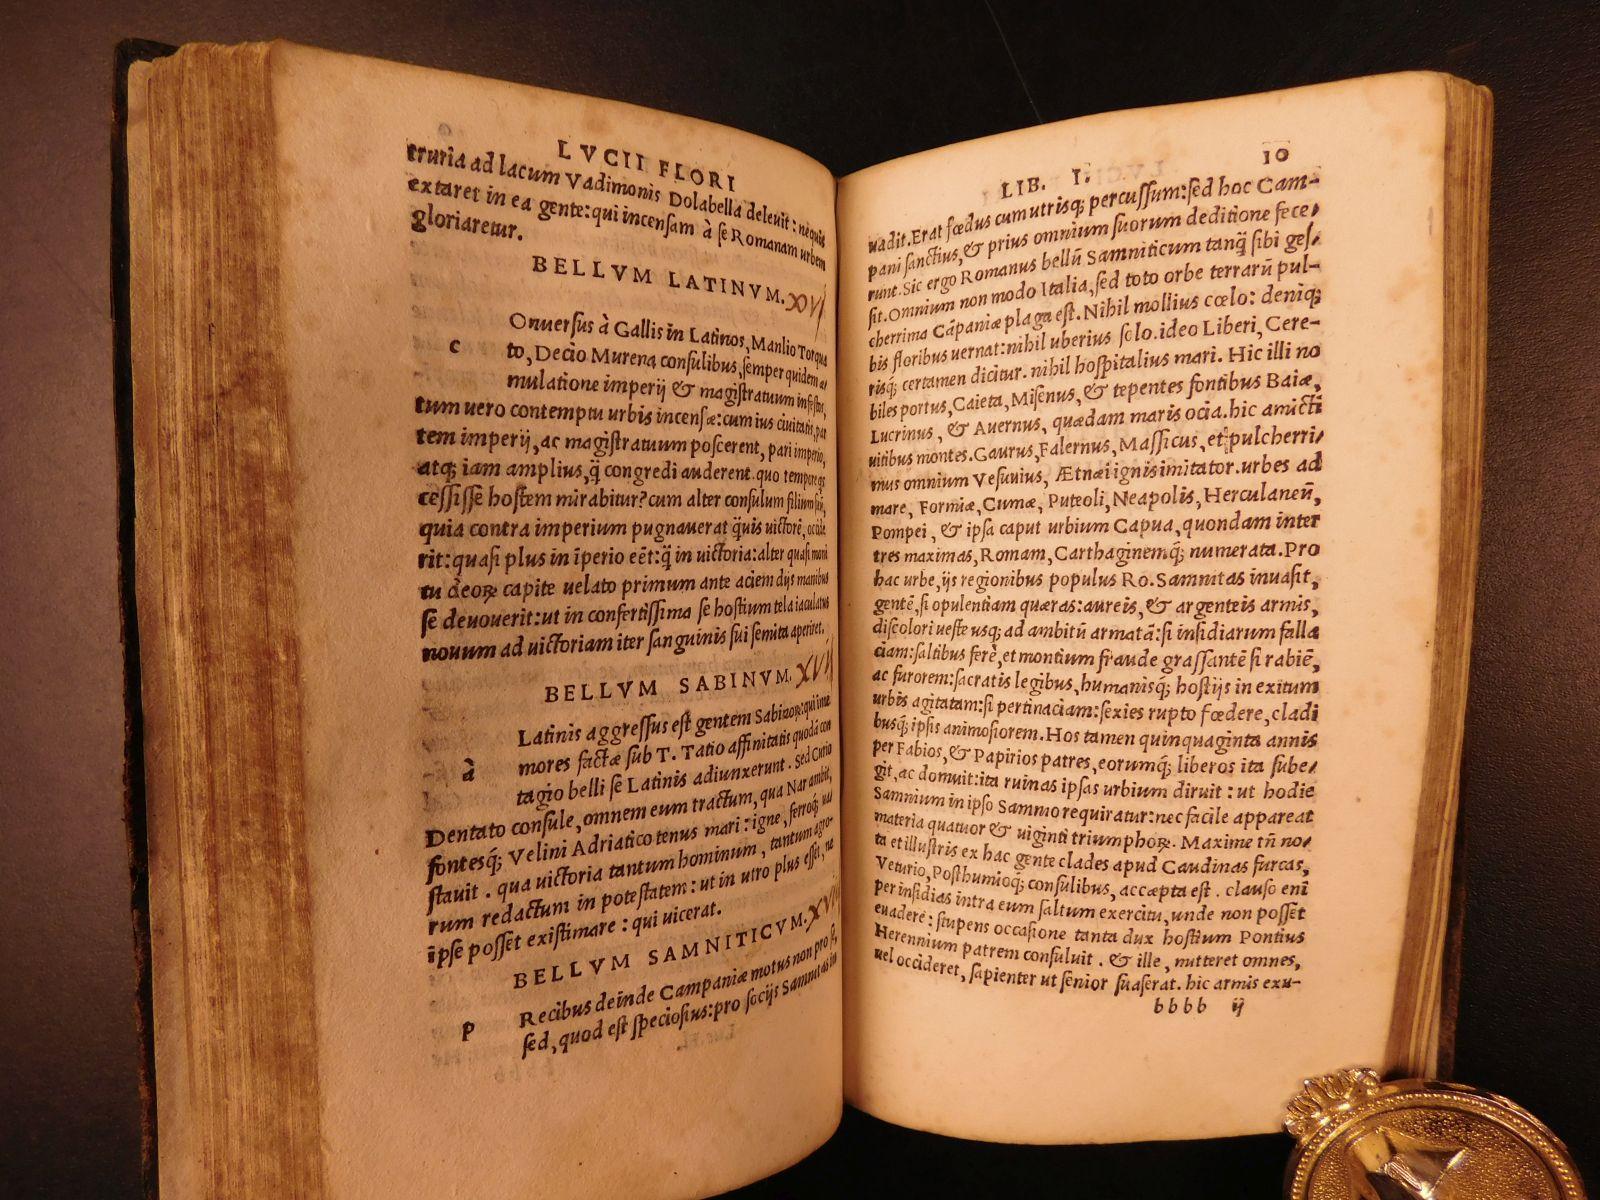 LVCII FLORI
truria ad lacum Vadimonis Dolabella deleuit: ne quis
extaret in ea gente: qui incensam à se Romanam urbem
gloriaretur.
BELLVM LATINVM. XVI
c Onuersus à Gallis in Latinos, Manlio Torqua
to, Decio Murena consulibus, semper quidem æ
mulatione imperij & magistratuum infestos,
tum uero contemptu urbis incensæ: cum ius ciuitatis, par
tem imperij, ac magistratuum poscerent, pari imperio,
atq; iam amplius, q̃ congredi auderent. quo tempore
cessisse hostem mirabitur? cum alter consulum filium suũ,
quia contra imperium pugnauerat q̃uis uictorẽ, occide
rit: quasi plus in ĩperio eẽt: q̃ in uictoria: alter quasi moni
tu deoꝝ capite uelato primum ante aciem dijs manibus
se deuouerit: ut in confertissima se hostium tela iaculatus
nouum ad uictoriam iter sanguinis sui semita aperiret.
BELLVM SABINVM. XVII
à Latinis aggressus est gentem Sabinoꝝ: qui ime
mores factæ sub T. Tatio affinitatis quodã con
tagio belli se Latinis adiunxerunt. Sed Curio
Dentato consule, omnem eum tractum, qua Nar ambit,
fontesq; Velini Adriatico tenus mari: igne, ferroq; ua
stauit. qua uictoria tantum hominum, tantum agro-
rum redactum in potestatem: ut in utro plus esset, ne
ipse posset existimare: qui uicerat.
BELLVM SAMNITICVM. XVIII
p Recibus deinde Campaniæ motus non pro se,
sed, quod est speciosius: pro socijs Samnitas in
LIB. I. 10
uadit. Erat fœdus cum utrisq; percussum: sed hoc Cam-
pani sanctius, & prius omnium suorum deditione fece/
runt. Sic ergo Romanus bellũ Samniticum tanq̃ sibi ges/
sit. Omnium non modo Italia, sed toto orbe terrarũ pul-
cherrima Cãpaniæ plaga est. Nihil mollius cœlo: deniq;
bis floribus uernat: nihil uberius solo. ideo Liberi, Cere-
risq; certamen dicitur. nihil hospitalius mari. Hic illi no
biles portus, Caieta, Misenus, & tepentes fontibus Baiæ,
Lucrinus, & Auernus, quædam maris ocia. hic amicti
uitibus montes. Gaurus, Falernus, Massicus, et pulcherri/
mus omnium Vesuuius, Ætnæi ignis imitator. urbes ad
mare, Formiæ, Cumæ, Puteoli, Neapolis, Herculaneũ,
Pompei, & ipsa caput urbium Capua, quondam inter
tres maximas, Romam, Carthaginemq; numerata. Pro
hac urbe, ijs regionibus populus Ro. Samnitas inuasit,
gentẽ, si opulentiam quæras: aureis, & argenteis armis,
discolori ueste usq; ad ambitũ armatã: si insidiarum falla
ciam: saltibus ferè, et montium fraude grassantẽ si rabiẽ,
ac furorem: sacratis legibus, humanisq; hostijs in exitum
urbis agitatam: si pertinaciam: sexies rupto fœdere, cladi
busq; ipsis animosiorem. Hos tamen quinquaginta annis
per Fabios, & Papirios patres, eorumq; liberos ita sube/
git, ac domuit: ita ruinas ipsas urbium diruit: ut hodie
Samnium in ipso Samnio requiratur: nec facile appareat
materia quatuor & uiginti triumphoꝝ. Maxime tñ no-
ta et illustris ex hac gente clades apud Caudinas furcas,
Veturio, Posthumioq; consulibus, accæpta est. clauso enĩ
per insidias intra eum saltum exercitu, unde non posset
euadere: stupens occasione tanta dux hostium Pontius
Herennium patrem consuluit. & ille, mitteret omnes,
uel occideret, sapienter ut senior suaserat. hic armis exu-
bbbb ij